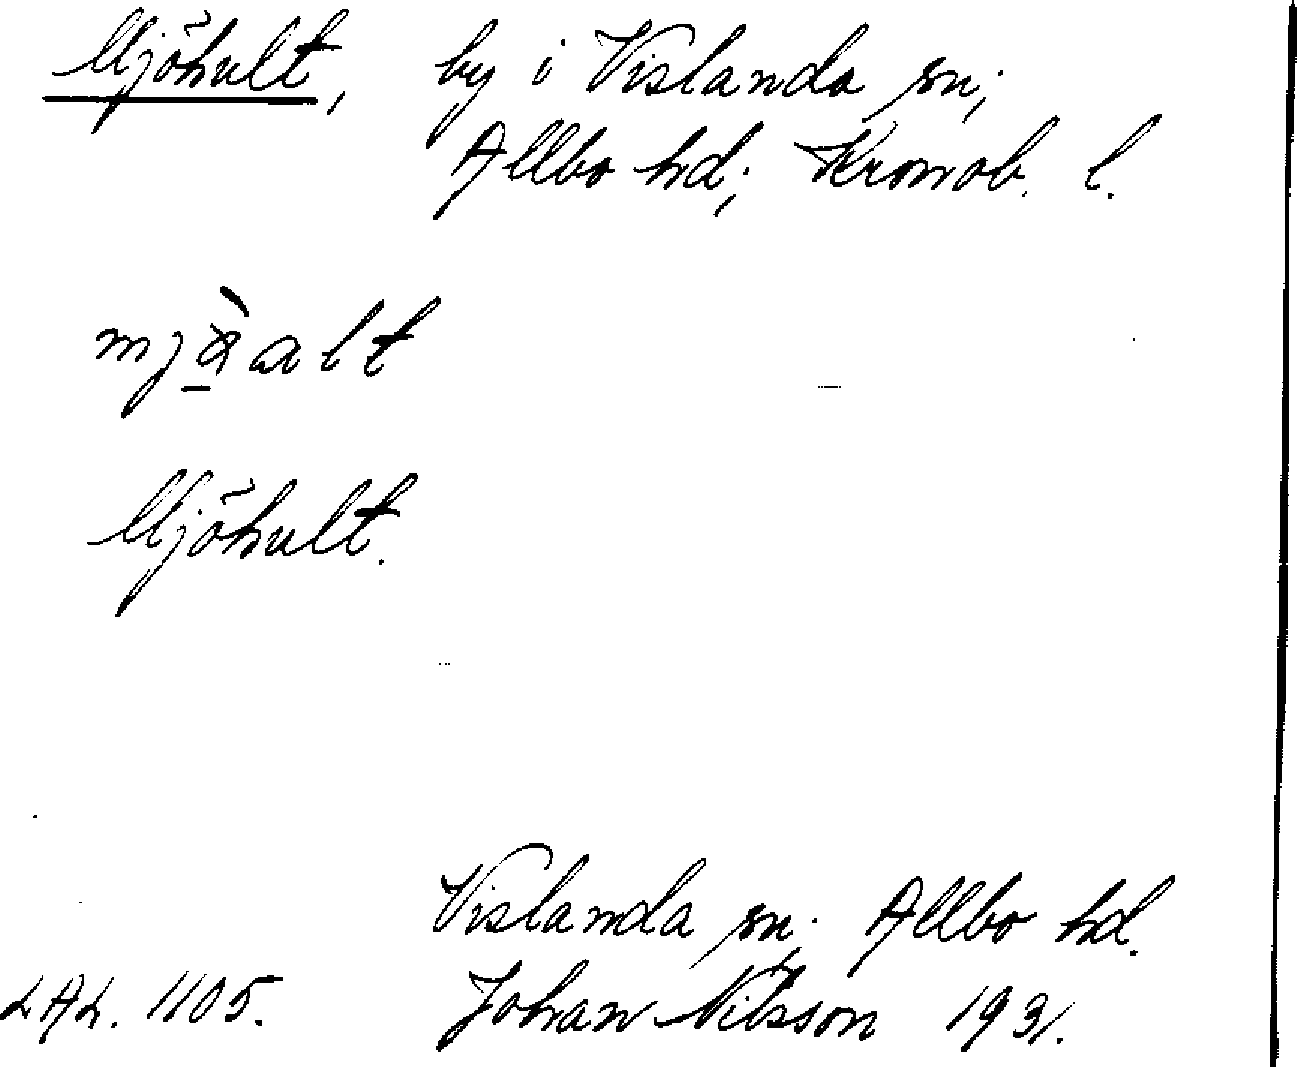 Mjöhult, by i Vislanda sn;
Allbo hd; Kronob. l.
Mjöhult.
Vislanda sn. Allbo hd.
LAL. 1105. Johan Nilsson 1931.